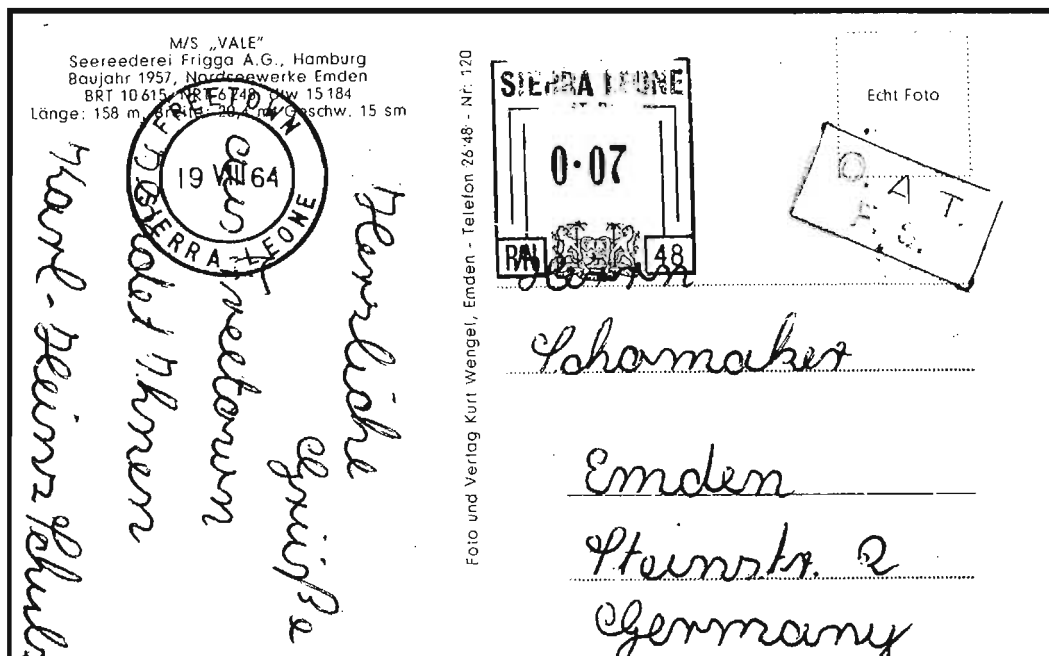 M/S „VALE"
Seereederei Frigga A.G., Hamburg
Baujahr 1957, Nordseewerke Emden
BRT 10 615, NRT 6 748, dw 15 184
Länge: 158 m, Geschw. 15 sm
FREETOWN
19 VIII 64
SIERRA-LEONE
Herrliche
Grüße
aus Freetown
sendet Ihnen
Karl-Heinz
Foto und Verlag Kurt Wengel, Emden - Telefon 26 48 - Nr. 120
SIERRA LEONE
0·07
48
Echt Foto
O. A T.
F. S.
Herrn
Schomaker
Emden
Steinstr. 2
Germany